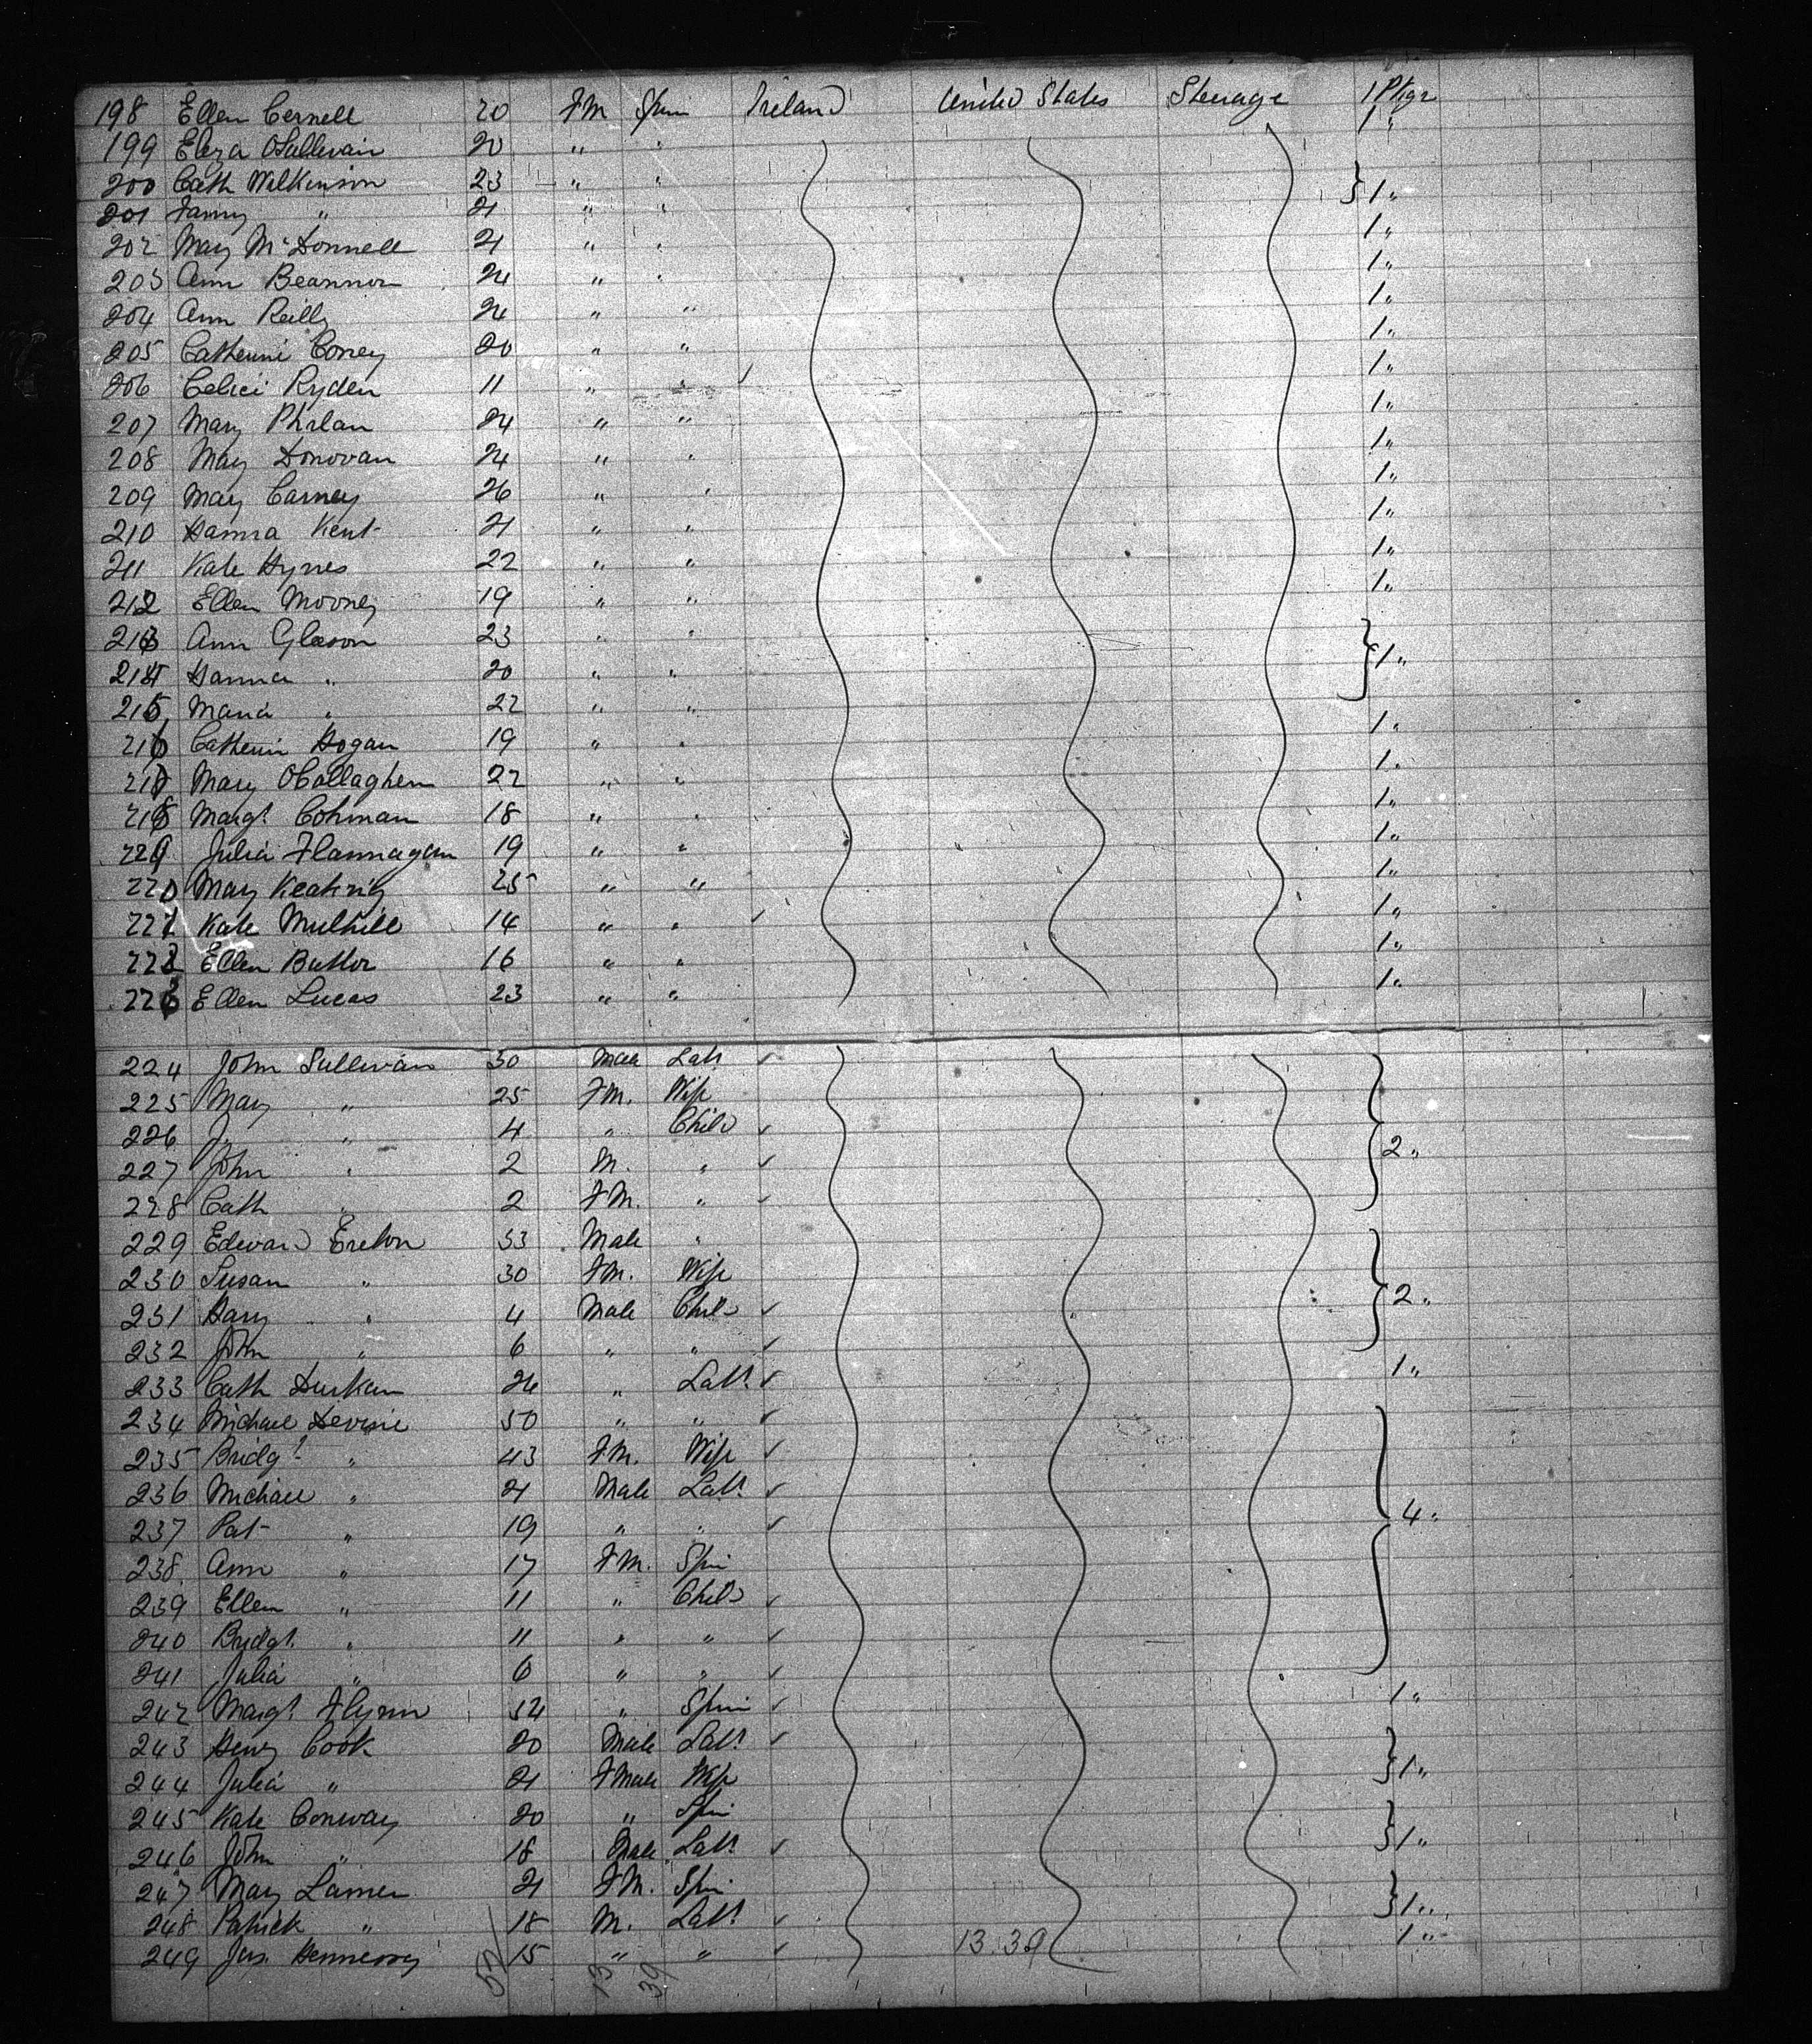 198 Ellen Cernell 20 FM Spin Ireland United States Steerage 1 Pkge
199 Eliza OSullivan 20 " " 1 "
200 Cath Wilkinson 23 " " } 1 "
201 Fanny " 21 " "
202 Mary McDonnell 21 " " 1 "
203 Ann Beannon 24 " " 1 "
204 Ann Reilly 24 " " 1 "
205 Catherine Correy 20 " " 1 "
206 Celici Ryden 11 " " ✓ 1 "
207 Mary Phelan 24 " " 1 "
208 Mary Donovan 24 " " 1 "
209 Mary Carney 26 " " 1 "
210 Hanna Kent 21 " " 1 "
211 Kate Hynes 22 " " 1 "
212 Ellen Mooney 19 " " 1 "
213 Ann Gleeson 23 " " } 1 "
214 Hanna " 20 " "
215 Maria " 22 " "
216 Catherin Hogan 19 " " 1 "
217 Mary OCallaghem 22 " " 1 "
218 Margt. Cohman 18 " " 1 "
219 Julia Flannagan 19 " " 1 "
220 Mary Keating 25 " " 1 "
221 Kate Mulhill 14 " " ✓ 1 "
222 Ellen Butler 16 " " 1 "
223 Ellen Lucas 23 " " 1 "
224 John Sullivan 30 Male Labr ✓ } 2 "
225 Mary " 25 FM. Wife
226 J " 4 " Child ✓
227 John " 2 M. " ✓
228 Cath " 2 FM. " ✓
229 Edward Breton 33 Male " } 2 "
230 Susan " 30 FM. Wife
231 Harry " 4 Male Child ✓
232 John " 6 " " ✓
233 Cath Durkan 24 " Labr. ✓ 1 "
234 Michael Devine 50 " " ✓ } 4 "
235 Bridgt " 43 FM. Wife ✓
236 Michael " 21 Male Labr. ✓
237 Pat " 19 " " ✓
238 Ann " 17 FM. Spin
239 Ellen " 11 " Child ✓
240 Bridgt. " 11 " " ✓
241 Julia " 6 " " ✓
242 Margt. Flynn 34 " Spin ✓ 1 "
243 Henry Cook 20 Male Labr ✓ } 1 "
244 Julia " 21 FMale Wife
245 Kate Conway 20 " Spin } 1 "
246 John " 18 Male Labr ✓
247 Mary Lamen 21 FM. Spin } 1 "
248 Patrick " 18 M. Labr ✓
249 Jas. Hennessy 15 " " ✓ 13.39 1 "
52 13 39